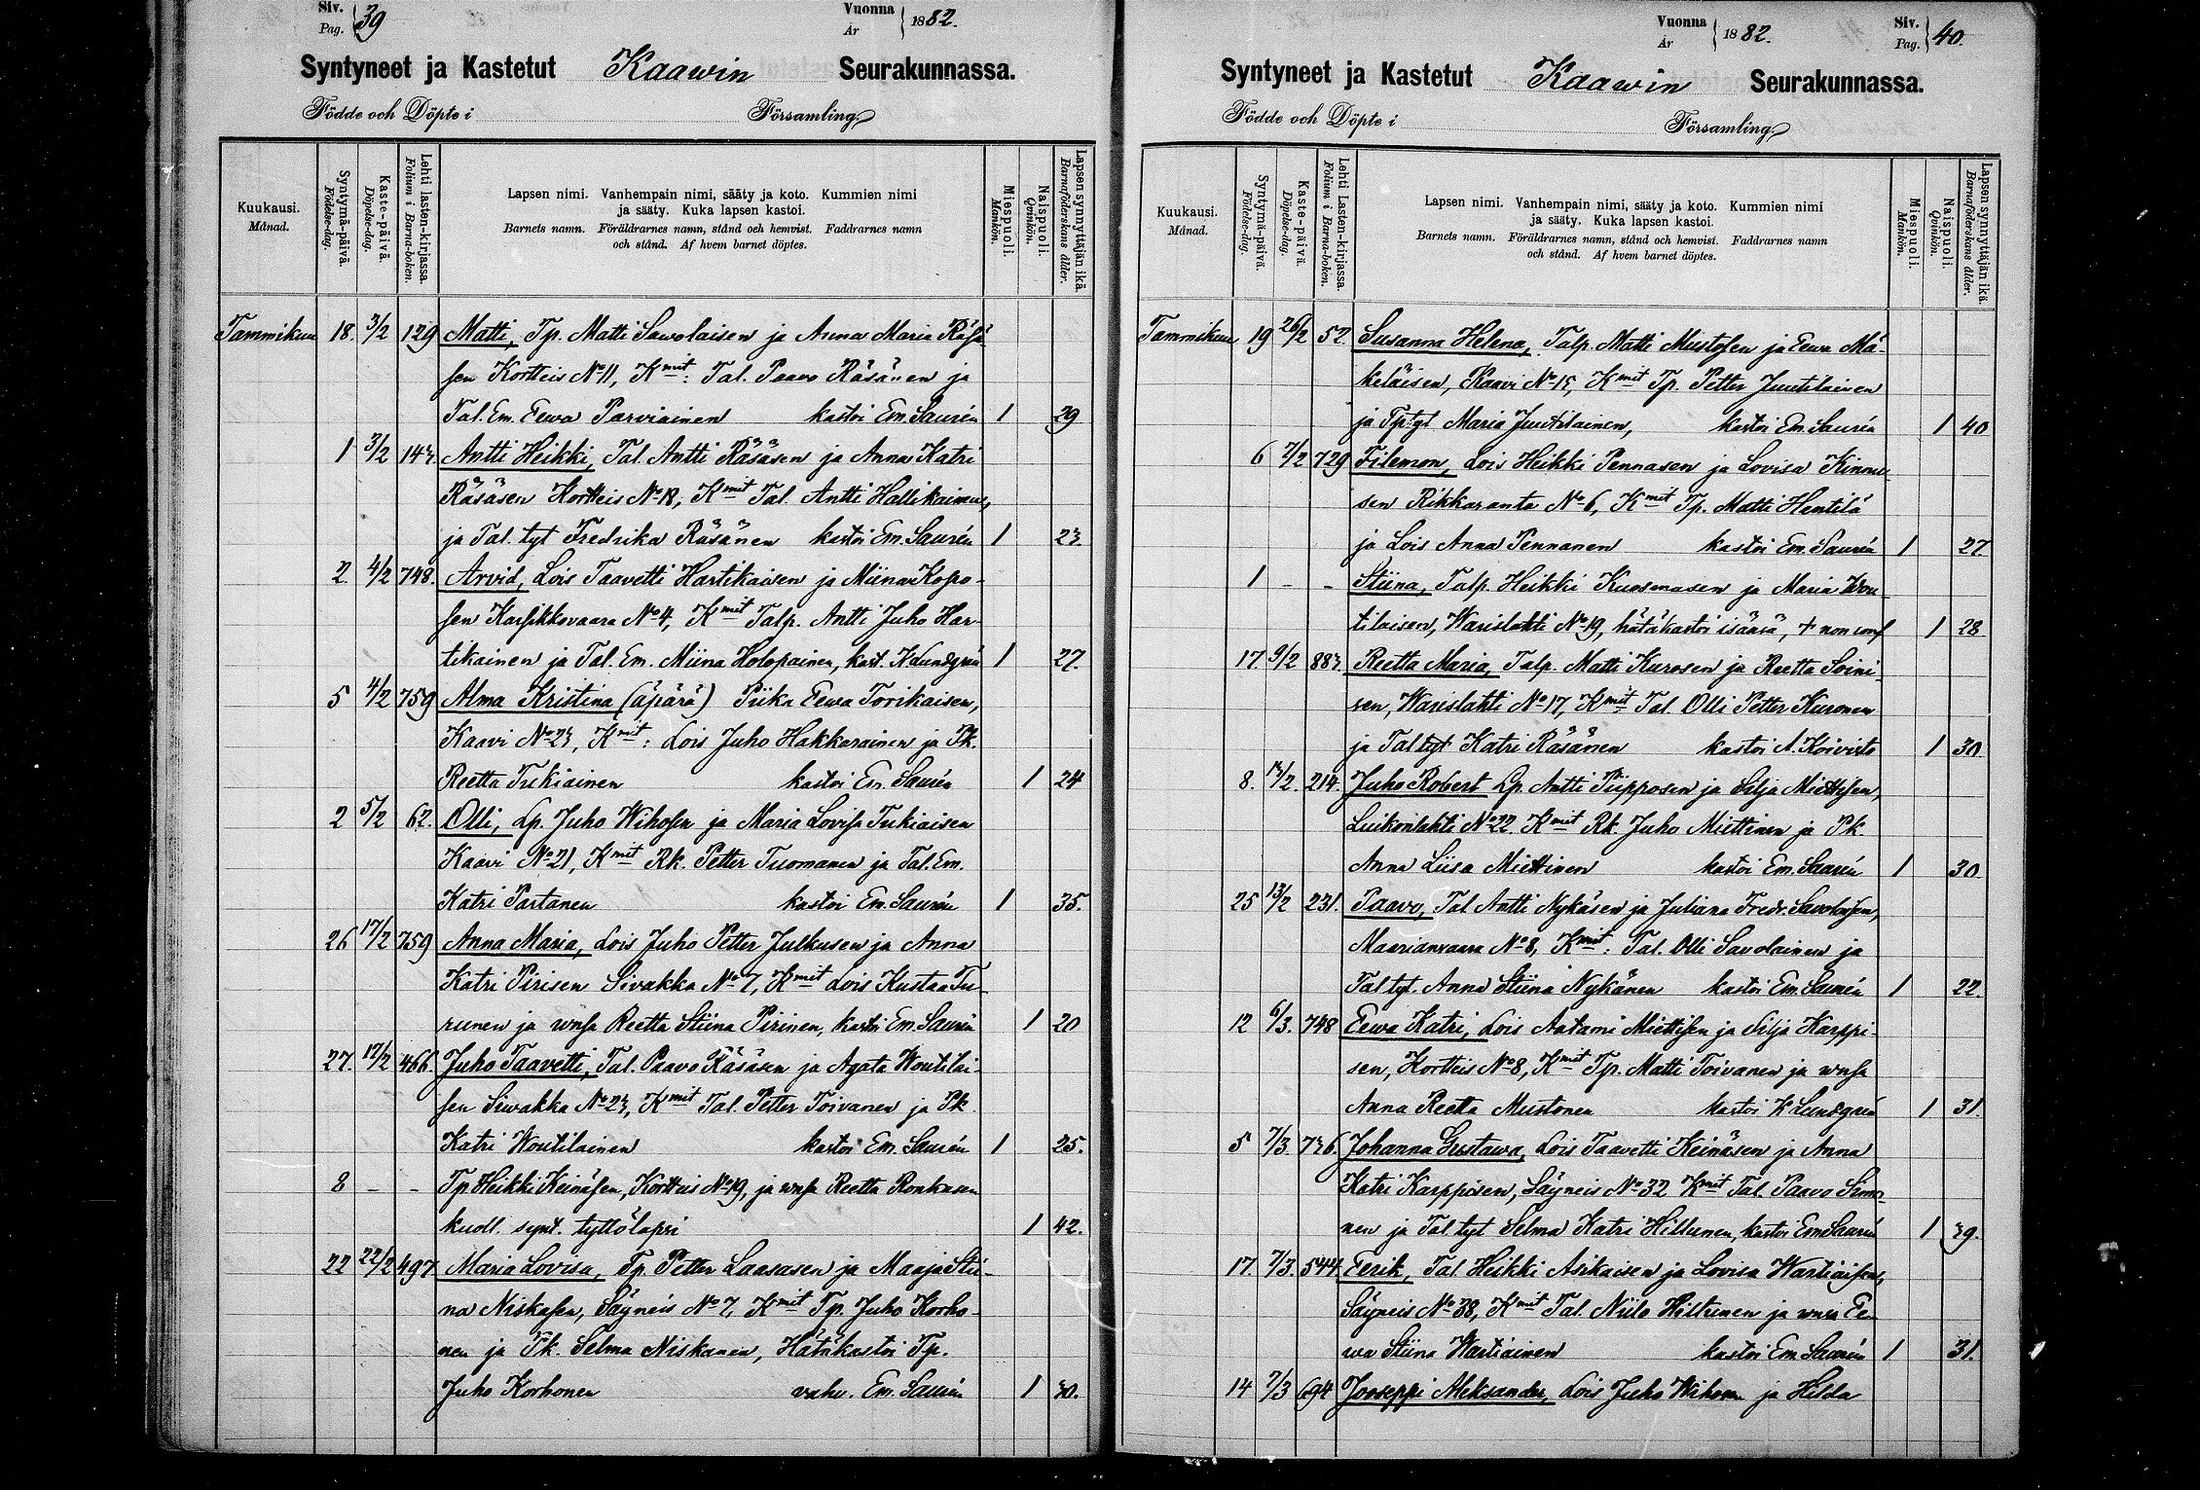 Siv. Pag. 39
Vuonna År 1882.
Syntyneet ja Kastetut Kaawin Seurakunnassa.
Födde och Döpte i Församling
Kuukausi. Månad.
Syntymä-päivä. Födelse-dag.
Kaste-päivä. Döpelse-dag.
Lehti lasten-kirjassa. Folium i Barna-boken.
Lapsen nimi. Vanhempain nimi, sääty ja koto. Kummien nimi
ja sääty. Kuka lapsen kastoi.
Barnets namn. Föräldrarnes namn, stånd och hemvist. Faddrarnes namn
och stånd. Af hvem barnet döptes.
Miespuoli. Mankön.
Naispuoli. Qvinkön.
Lapsen synnyttäjän ikä. Barnaföderskans ålder.
Tammikuu 18. 3/2 129 Matti, Tp. Matti Sawolaisen ja Anna Maria Räsä-
sen Kortteis No 11, Kmit: Tal. Paavo Räsänen ja
Tal. Em. Eewa Parviainen kastoi Em. Saurén 1 29
1 3/2 143. Antti Heikki, Tal. Antti Räsäsen ja Anna Katri
Räsäsen Kortteis No 18, Kmit Tal. Antti Hallikainen,
ja Tal. tyt Fredrika Räsänen kastoi Em. Saurén 1 23
2 4/2 748. Arvid, Lois Taavetti Hartikaisen ja Miina Kopo-
sen Karsikkovaara No 4, Kmit Talp. Antti Juho Har-
tikainen ja Tal. Em. Miina Holopainen, kast. K Lundgrén 1 27.
5 4/2 759 Alma Kristina (äpärä) Piika Eewa Torikaisen,
Kaavi No 23, Kmit: Lois Juho Hakkarainen ja Pk.
Reetta Tukiainen kastoi Em. Saurén 1 24
2 5/2 62. Olli, Lp. Juho Wihosen ja Maria Lovisa Tukiaisen
Kaavi No 21, Kmit Rk. Petter Tuomanen ja Tal. Em.
Katri Partanen kastoi Em. Saurén 1 35.
26 17/2 759 Anna Maria, Lois Juho Petter Julkusen ja Anna
Katri Pirisen Sivakka No 7, Kmit Lois Kustaa Tu-
runen ja wnsa Reetta Stiina Pirinen, kastoi Em. Saurén 1 20
27. 17/2 466. Juho Taavetti, Tal. Paavo Räsäsen ja Agata Woutilai-
sen Siwakka No 23, Kmit Tal. Petter Toivanen ja Pk
Katri Woutilainen kastoi Em. Saurén 1 25.
8 - - Tp. Heikki Keinäsen, Kortteis No 19, ja wnsa Reetta Ronkasen
kuoll. synt. tyttölapsi 1 42.
22 22/2 497 Maria Lovisa, Tp. Petter Laasasen ja Maaja Stii-
na Niskasen, Säyneis No 7, Kmit Tp. Juho Korho-
nen ja Pk. Selma Niskanen, Hätäkastoi Tp.
Juho Korhonen vahv. Em. Saurén 1 30.
Vuonna År 1882.
Siv. Pag. 40.
Syntyneet ja Kastetut Kaawin Seurakunnassa.
Födde och Döpte i Församling
Kuukausi. Månad.
Syntymä-päivä. Födelse-dag.
Kaste-päivä. Döpelse-dag.
Lehti Lasten-kirjassa. Folium i Barna-boken.
Lapsen nimi. Vanhempain nimi, sääty ja koto. Kummien nimi
ja sääty. Kuka lapsen kastoi.
Barnets namn. Föräldrarnes namn, stånd och hemvist. Faddrarnes namn
och stånd. Af hvem barnet döptes.
Miespuoli. Mankön.
Naispuoli. Qvinkön.
Lapsen synnyttäjän ikä. Barnaföderskans ålder.
Tammikuu 19 26/2 52. Susanna Helena, Talp. Matti Mustosen ja Eewa Mä-
keläisen, Kaavi No 15, Kmit Tp. Petter Juutilainen
ja Tp tyt Maria Juutilainen, kastoi Em. Saurén 1 40
6 7/2 729 Filemon, Lois Heikki Pennasen ja Lovisa Kinnu-
sen Rikkaranta No 6, Kmit Tp. Matti Hentilä
ja Lois Anna Pennanen kastoi Em. Saurén 1 27
1 - - Stiina, Talp. Heikki Kuosmasen ja Maria Wou-
tilaisen, Warislahti No 19, hätäkastoi isänsä, + non conf 1 28
17 9/2 883. Reetta Maria, Talp. Matti Kurosen ja Reetta Soini-
sen, Warislahti No 17, Kmit Tal. Olli Petter Kuronen
ja Tal tyt Katri Räsänen kastoi A. Koivisto 1 30
8. 13/2. 214. Juho Robert Lp. Antti Piipposen ja Silja Miettisen,
Luikonlahti No 22 Kmit Rk. Juho Miettinen ja Pk.
Anna Liisa Miettinen kastoi Em. Saurén 1 30
25 13/2 231. Paavo, Tal Antti Nykäsen ja Juliana Fredr. Savolaisen,
Maarianvaara No 8, Kmit: Tal. Olli Savolainen ja
Tal tyt. Anna Stiina Nykänen kastoi Em. Saurén 1 22.
12 6/3. 748 Eewa Katri, Lois Aatami Miettisen ja Silja Karppi-
sen, Kortteis No 8, Kmit Tp. Matti Toivanen ja wnsa
Anna Reetta Mustonen kastoi K Lundgrén 1 31.
5 7/3. 736. Johanna Gustawa, Lois Taavetti Keinäsen ja Anna
Katri Karppisen, Säyneis No 32 Kmit Tal. Paavo Simo-
nen ja Tal tyt Selma Katri Hiltunen, kastoi Em Saurén 1 39.
17. 7/3. 544. Eerik, Tal. Heikki Asikaisen ja Lovisa Wartiaisen,
Säyneis No 38, Kmit Tal. Niilo Hiltunen ja wnsa Ee-
wa Stiina Wartiainen kastoi Em. Saurén 1 31.
14 7/3 694 Jooseppi Aleksander, Lois Juho Wihosen ja Hilda